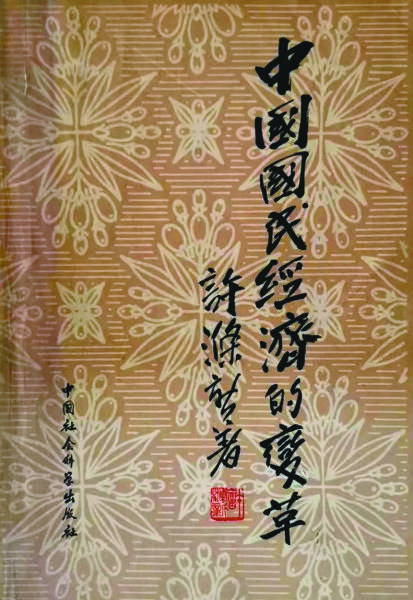 中國國民經濟的變革
許滌新著
中国社会科学出版社